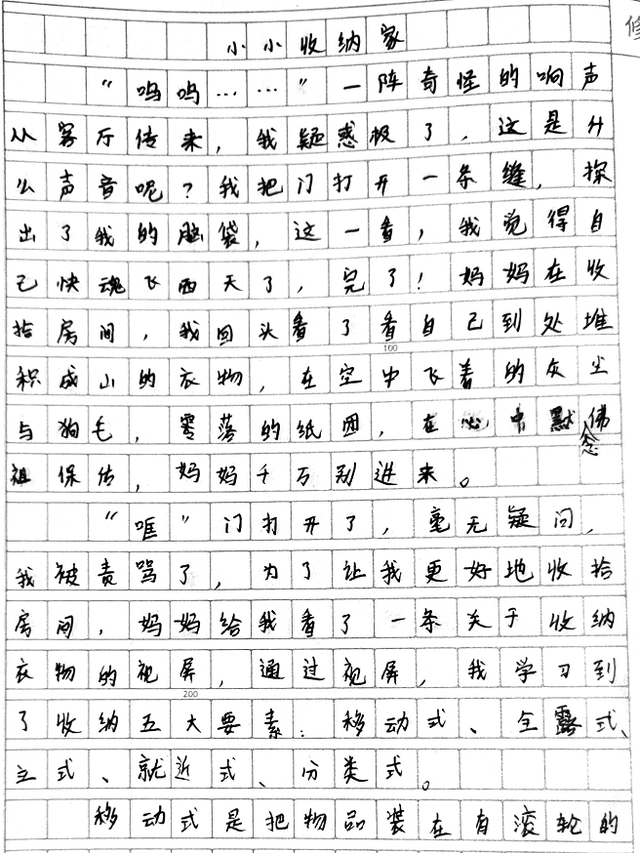 修
小小收纳家
“呜呜……”一阵奇怪的响声
从客厅传来，我疑惑极了，这是什
么声音呢？我把门打开一条缝，探
出了我的脑袋，这一看，我觉得自
己快魂飞西天了，完了！妈妈在收
拾房间，我回头看了看自己到处堆
100
积成山的衣物，在空中飞着的灰尘
与狗毛，零落的纸团，在心中默念佛
祖保佑，妈妈千万别进来。
“哐”门打开了，毫无疑问，
我被责骂了，为了让我更好地收拾
房间，妈妈给我看了一条关于收纳
衣物的视屏，通过视屏，我学习到
200
了收纳五大要素：移动式、全露式、
立式、就近式、分类式。
移动式是把物品装在有滚轮的